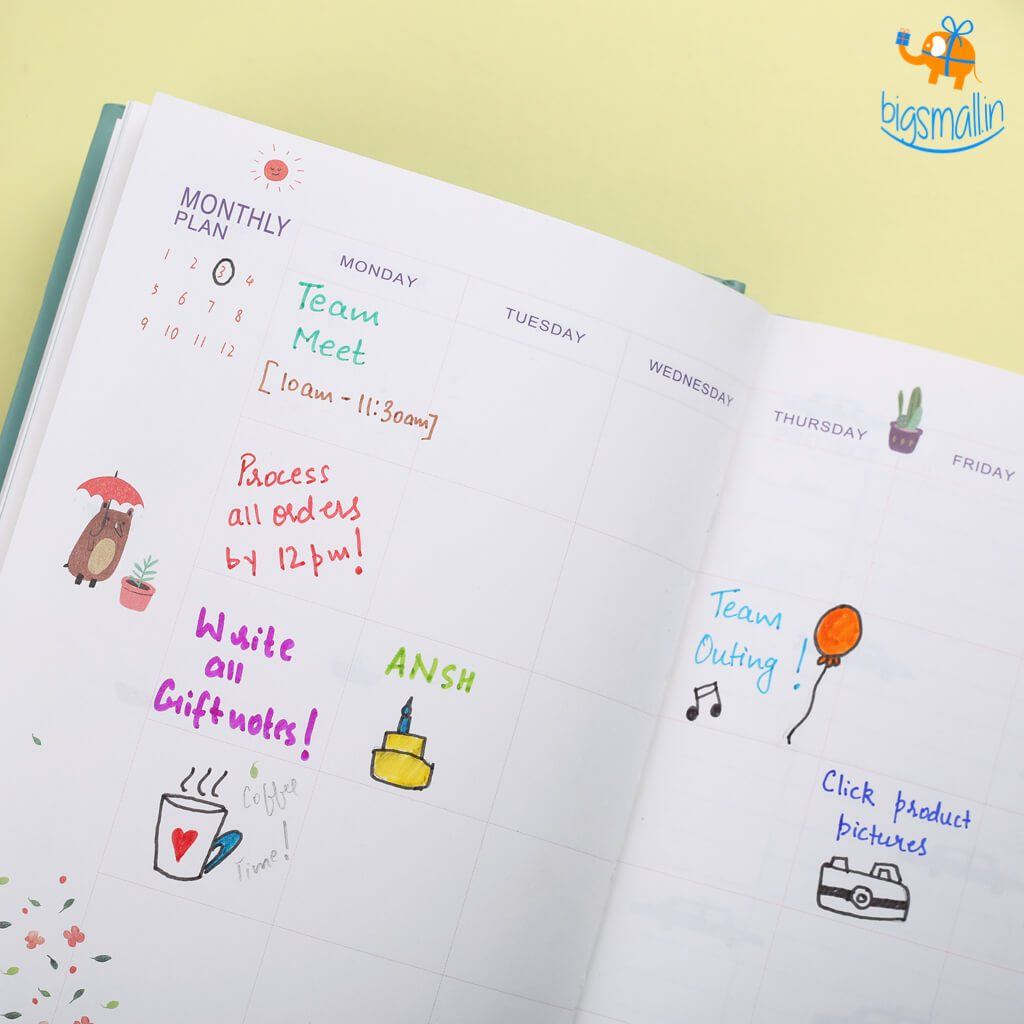 bigsmall.in
MONTHLY
PLAN
1 2 3 4
5 6 7 8
9 10 11 12
MONDAY
TUESDAY
WEDNESDAY
THURSDAY
FRIDAY
Team
Meet
[10am - 11:30am]
Process
all orders
by 12pm!
Write
all
Giftnotes!
ANSH
Team
Outing!
Coffee
Time!
Click product
pictures